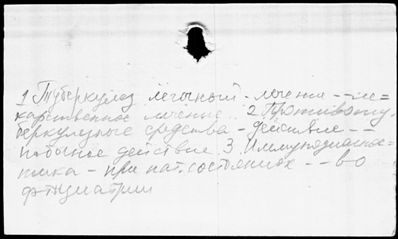 1 Туберкулез легочный - лечение -- ле=
карственное лечение. 2 Противоту-
беркулезные средства - действие --
побочное действие 3. Иммунодиагнос=
тика - при пат. состояниях -- во
фтизиатрии